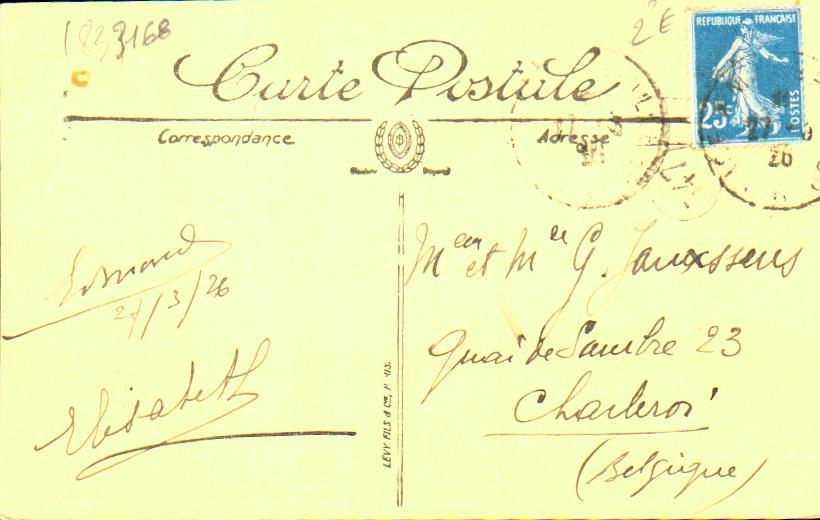 (833168
2€
RÉPUBLIQUE FRANÇAISE
25c
POSTES
27
26
Carte Postale
Correspondance
Adresse
Edmond
27/3/26
Elisabeth
LEVY FILS & Cie, P
Mr et Me G. Janssens
Quai de Sambre 23
Charleroi
(Belgique)